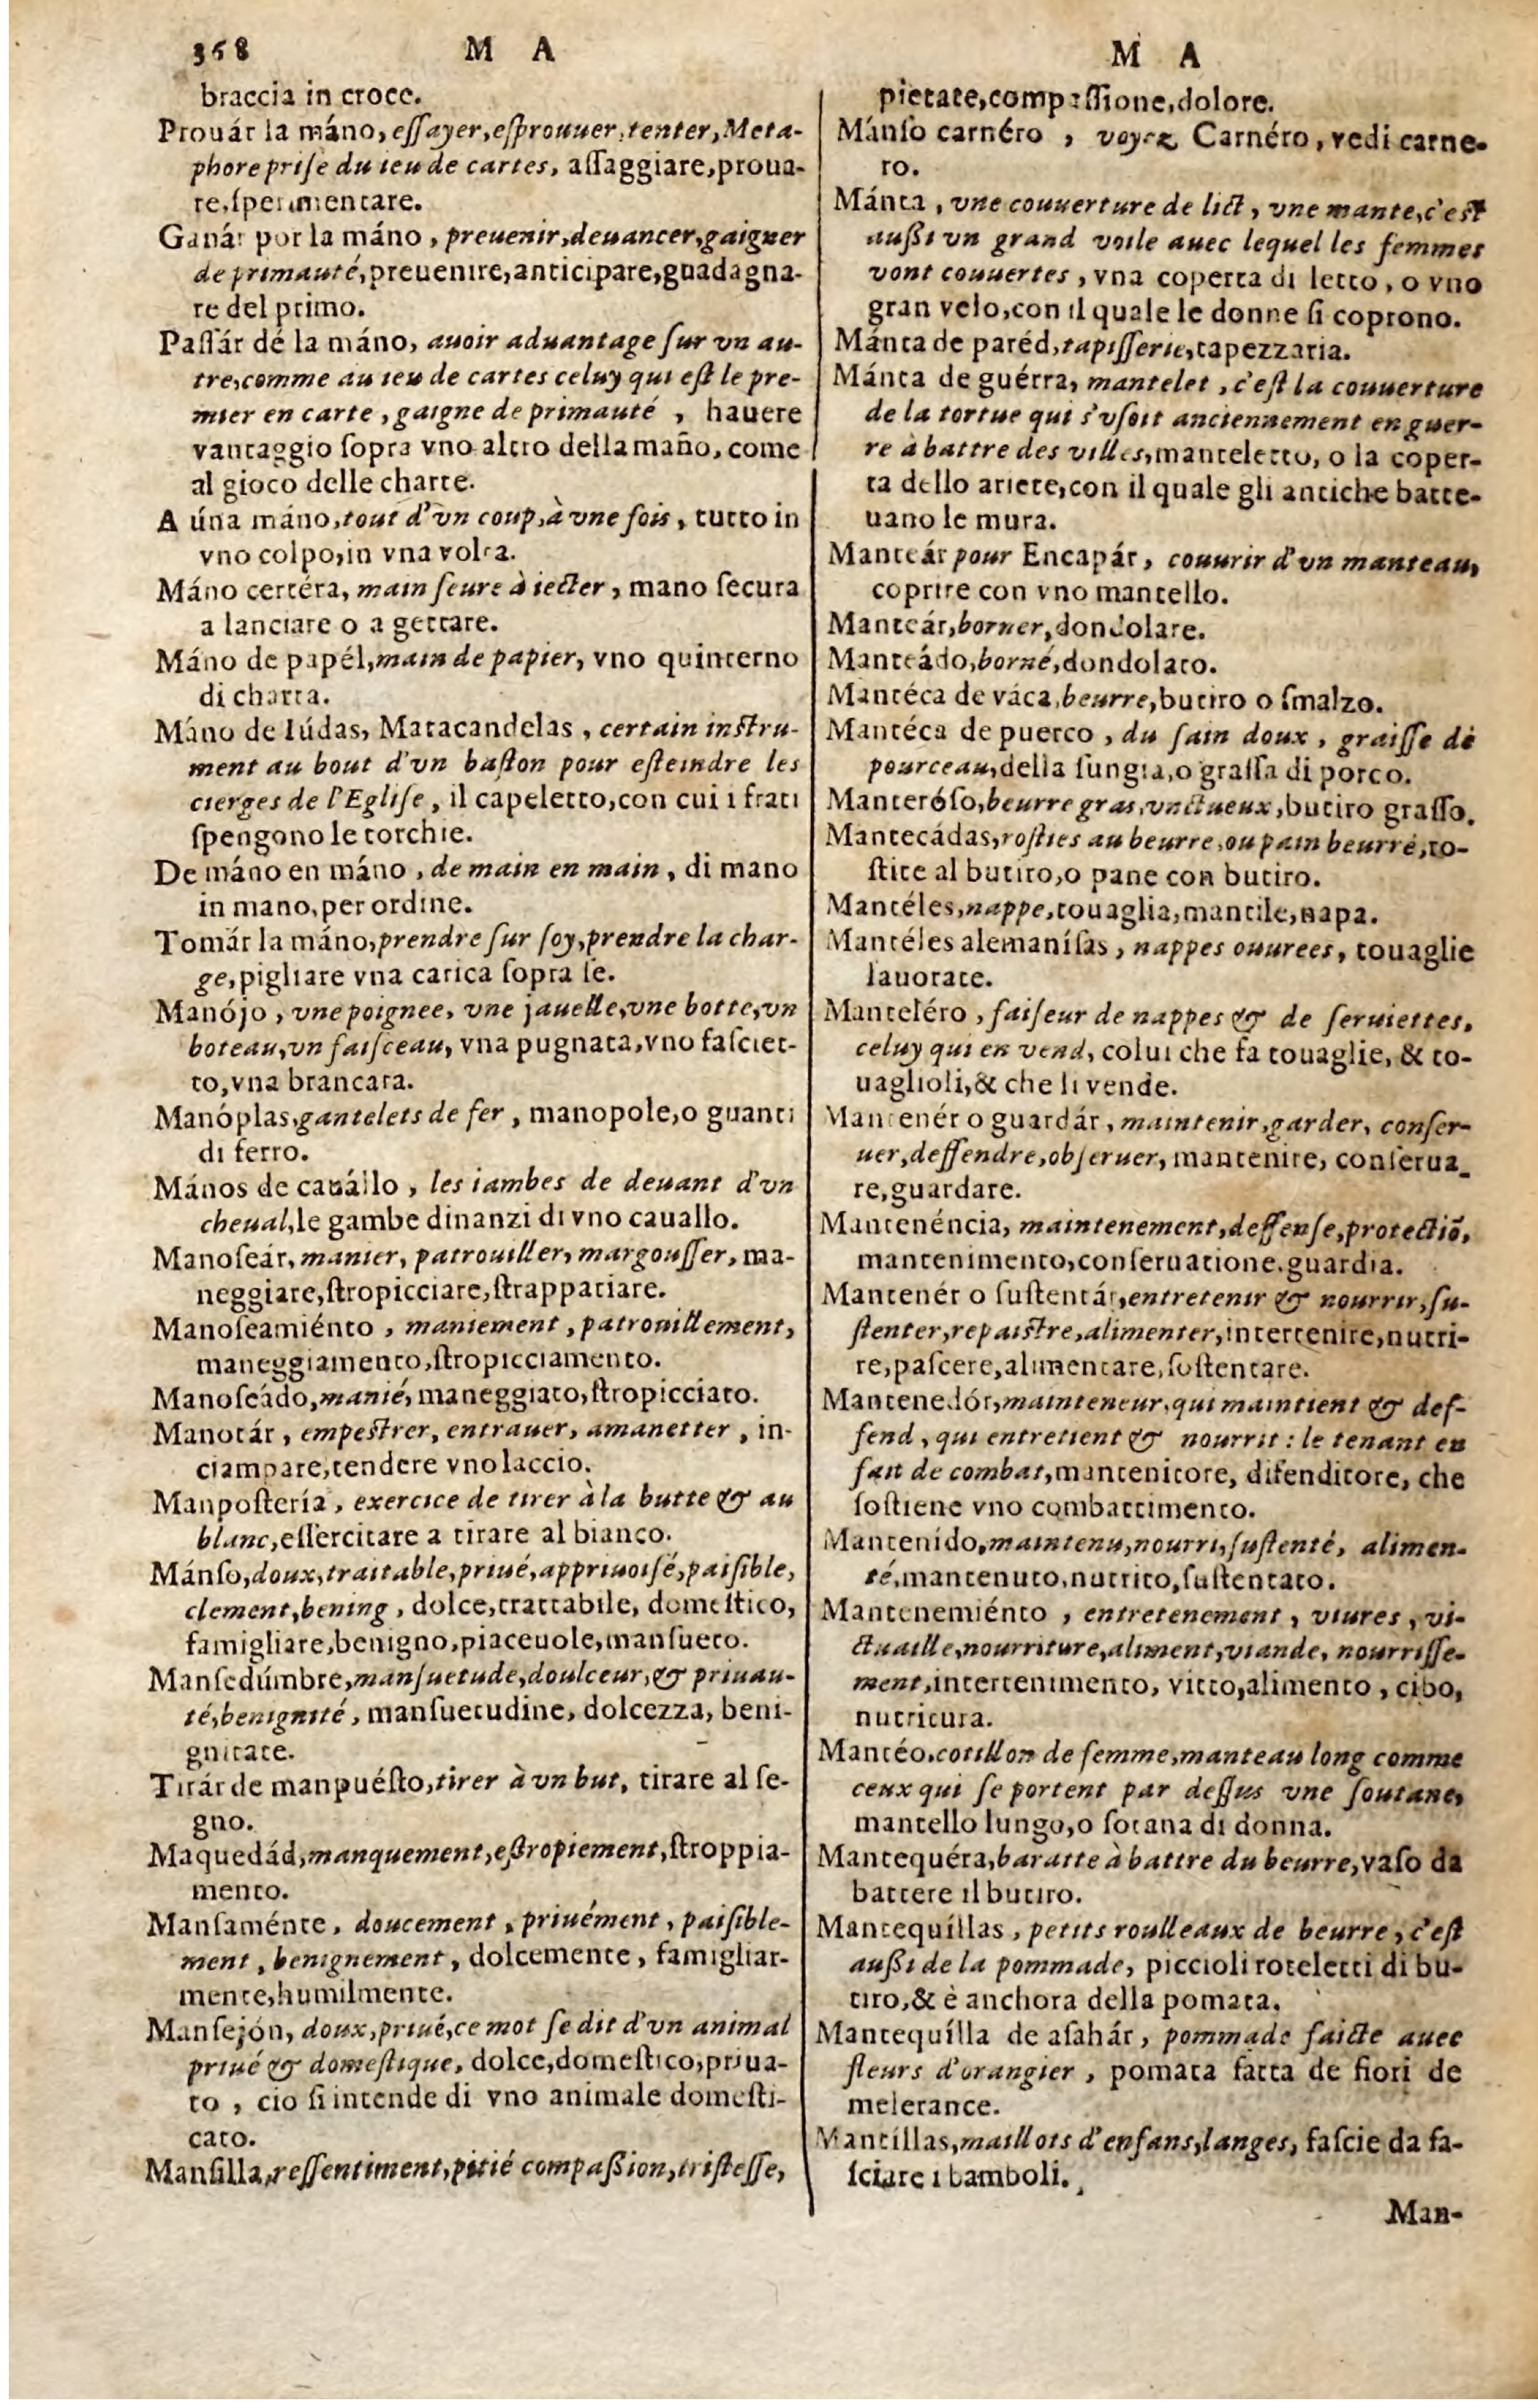 368 M A
braccia in croce.
Prouár la máno, eſſayer,eſprouuer,tenter,Meta-
phore priſe du ieu de cartes, aſſaggiare,proua-
re,ſperimentare.
Ganár por la máno, preuenir,deuancer,gaigner
de primauté,preuenire,anticipare,guadagna-
re del primo.
Paſſár dé la máno, auoir aduantage ſur vn au-
tre,comme au ieu de cartes celuy qui eſt le pre-
mier en carte, gaigne de primauté, hauere
vantaggio ſopra vno altro della mañо, come
al gioco delle charte.
A úna máno,tout d'vn coup,à vne fois, tutto in
vno colpo,in vna volta.
Máno certéra, main ſeure à iecter, mano ſecura
a lanciare o a gettare.
Máno de papél,main de papier, vno quinterno
di charta.
Máno de Iúdas, Matacandelas, certain inſtru-
ment au bout d'vn baſton pour eſteindre les
cierges de l'Egliſe, il capeletto,con cui i frati
ſpengono le torchie.
De máno en máno, de main en main, di mano
in mano,per ordine.
Tomár la máno,prendre ſur ſoy,prendre la char-
ge,pigliare vna carica ſopra ſe.
Manójo, vne poignee, vne jauelle,vne botte,vn
boteau,vn faiſceau, vna pugnata,vno faſciet-
to,vna brancata.
Manóplas,gantelets de fer, manopole,o guanti
di ferro.
Mános de caúállo, les iambes de deuant d'vn
cheual,le gambe dinanzi di vno cauallo.
Manoſeár, manier, patrouiller, margouſſer, ma-
neggiare,ſtropicciare,ſtrappatiare.
Manoſeamiénto, maniement, patrouillement,
maneggiamento,ſtropicciamento.
Manoſeádo,manié, maneggiato,ſtropicciato.
Manotár, empeſtrer, entrauer, amanetter, in-
ciampare,tendere vno laccio.
Manpoſtería, exercice de tirer à la butte & au
blanc,eſſercitare a tirare al bianco.
Mánſo,doux,traitable,priué,appriuoiſé,paiſible,
clement,bening, dolce,trattabile, domeſtico,
famigliare,benigno,piaceuole,manſueto.
Manſedúmbre,manſuetude,doulceur,& priuau-
té,benignité, manſuetudine, dolcezza, beni-
gnitate.
Tirár de manpuéſto,tirer à vn but, tirare al ſe-
gno.
Maquedád,manquement,eſtropiement,ſtroppia-
mento.
Manſaménte, doucement, priuément, paiſible-
ment, benignement, dolcemente, famigliar-
mente,humilmente.
Manſejón, doux,priué,ce mot ſe dit d'vn animal
priué & domeſtique, dolce,domeſtico,priua-
to, cio ſi intende di vno animale domeſti-
cato.
Manſilla,reſſentiment,pitié compaßion,triſteſſe,
M A
pietate,compaſſione,dolore.
Mánſo carnéro, voyez Carnéro, vedi carne-
ro.
Mánta, vne couuerture de lict, vne mante,c'eſt
außi vn grand voile auec lequel les femmes
vont couuertes, vna coperta di letto, o vno
gran velo,con il quale le donne ſi coprono.
Mánta de paréd,tapiſſerie,tapezzaria.
Mánta de guérra, mantelet, c'eſt la couuerture
de la tortue qui s'vſoit anciennement en guer-
re à battre des villes,manteletto, o la coper-
ta dello ariete,con il quale gli antiche batte-
uano le mura.
Manteár pour Encapár, couurir d'vn manteau,
coprire con vno mantello.
Manteár,borner,dondolare.
Manteádo,borné,dondolato.
Mantéca de váca,beurre,butiro o ſmalzo.
Mantéca de puerco, du ſain doux, graiſſe de
pourceau,della ſungia,o graſſa di porco.
Manteróſo,beurre gras,vnctueux,butiro graſſo.
Mantecádas,roſties au beurre,ou pain beurré,to-
ſtice al butiro,o pane con butiro.
Mantéles,nappe,touaglia,mantile,napa.
Mantéles alemaníſas, nappes ouurees, touaglie
lauorate.
Manteléro, faiſeur de nappes & de ſeruiettes,
celuy qui en vend, colui che fa touaglie, & to-
uaglioli,& che li vende.
Mantenér o guardár, maintenir,garder, conſer-
uer,deffendre,obſeruer, mantenire, conſerua-
re,guardare.
Mantenéncia, maintenement,deffenſe,protectiō,
mantenimento,conſeruatione.guardia.
Mantenér o ſuſtentár,entretenir & nourrir,ſu-
ſtenter,repaiſtre,alimenter,intertenire,nutri-
re,paſcere,alimentare,ſoſtentare.
Mantenedór,mainteneur,qui maintient & def-
fend, qui entretient & nourrit: le tenant en
fait de combat,mantenitore, difenditore, che
ſoſtiene vno combattimento.
Mantenído,maintenu,nourri,ſuſtenté, alimen-
té,mantenuto,nutrito,ſuſtentato.
Mantenemiénto, entretenement, viures, vi-
ctuaille,nourriture,aliment,viande, nourriſſe-
ment,intertenimento, vitto,alimento, cibo,
nutritura.
Mantéo,cotillon de femme,manteau long comme
ceux qui ſe portent par deſſus vne ſoutane,
mantello lungo,o ſotana di donna.
Mantequéra,baratte à battre du beurre,vaſo da
battere il butiro.
Mantequíllas, petits roulleaux de beurre, c'eſt
außi de la pommade, piccioli roteletti di bu-
tiro,& è anchora della pomata.
Mantequílla de aſahár, pommade faicte auec
fleurs d'orangier, pomata fatta de fiori de
melerance.
Mantíllas,maillots d'enfans,langes, faſcie da fa-
ſciare i bamboli.
Man-